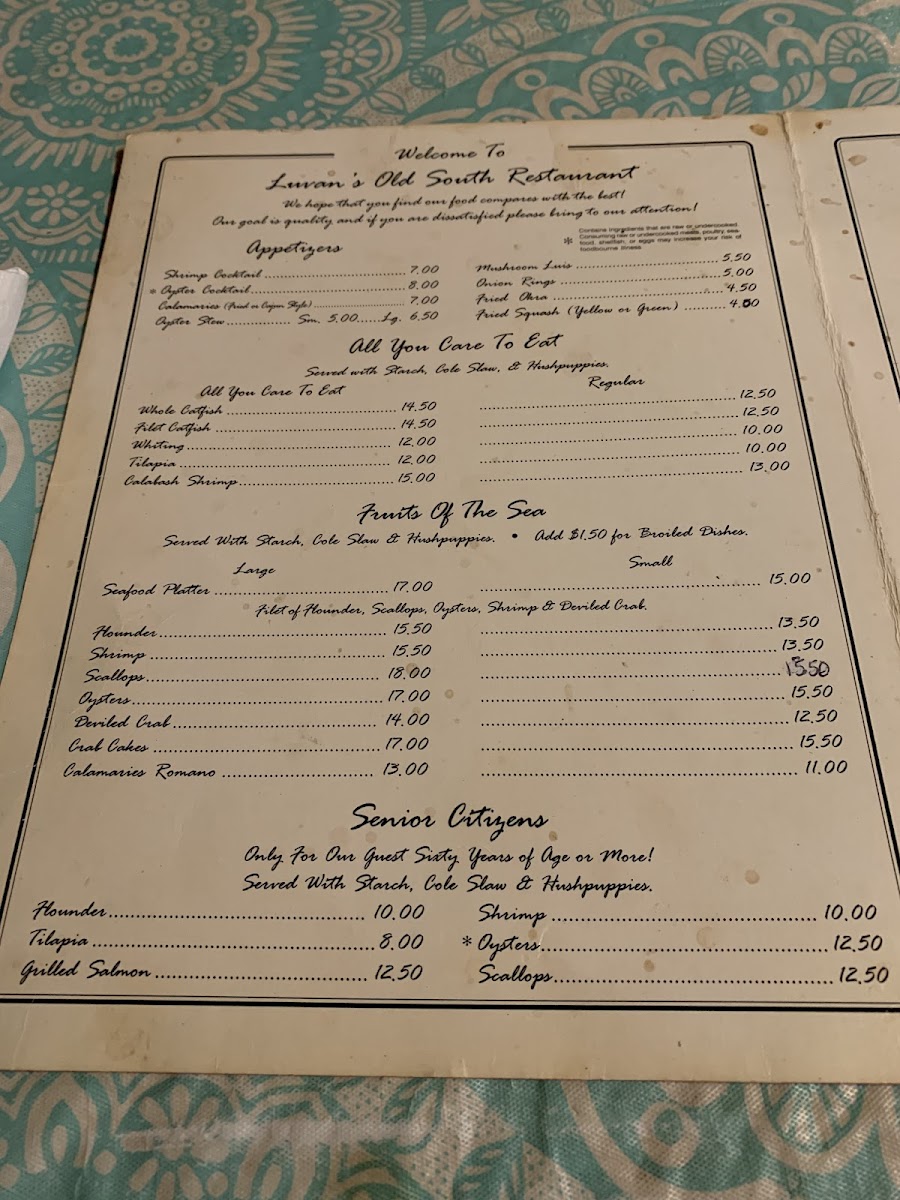 Welcome To
Luvan's Old South Restaurant
We hope that you find our food compares with the best!
Our goal is quality and if you are dissatisfied please bring to our attention!
* Contains ingredients that are raw or undercooked.
Consuming raw or undercooked meats, poultry, sea-
food, shellfish, or eggs may increase your risk of
foodbourne illness
Appetizers
Shrimp Cocktail 7.00
* Oyster Cocktail 8.00
Calamaries (Fried or Cajun Style) 7.00
Oyster Stew Sm. 5.00 Lg. 6.50
Mushroom Luis 5.50
Onion Rings 5.00
Fried Okra 4.50
Fried Squash (Yellow or Green) 4.50
All You Care To Eat
Served with Starch, Cole Slaw, & Hushpuppies.
All You Care To Eat Regular
Whole Catfish 14.50 12.50
Filet Catfish 14.50 12.50
Whiting 12.00 10.00
Tilapia 12.00 10.00
Calabash Shrimp 15.00 13.00
Fruits Of The Sea
Served With Starch, Cole Slaw & Hushpuppies. • Add $1.50 for Broiled Dishes.
Large Small
Seafood Platter 17.00 15.00
Filet of Flounder, Scallops, Oysters, Shrimp & Deviled Crab.
Flounder 15.50 13.50
Shrimp 15.50 13.50
Scallops 18.00 15.50
Oysters 17.00 15.50
Deviled Crab 14.00 12.50
Crab Cakes 17.00 15.50
Calamaries Romano 13.00 11.00
Senior Citizens
Only For Our Guest Sixty Years of Age or More!
Served With Starch, Cole Slaw & Hushpuppies.
Flounder 10.00 Shrimp 10.00
Tilapia 8.00 * Oysters 12.50
Grilled Salmon 12.50 Scallops 12.50